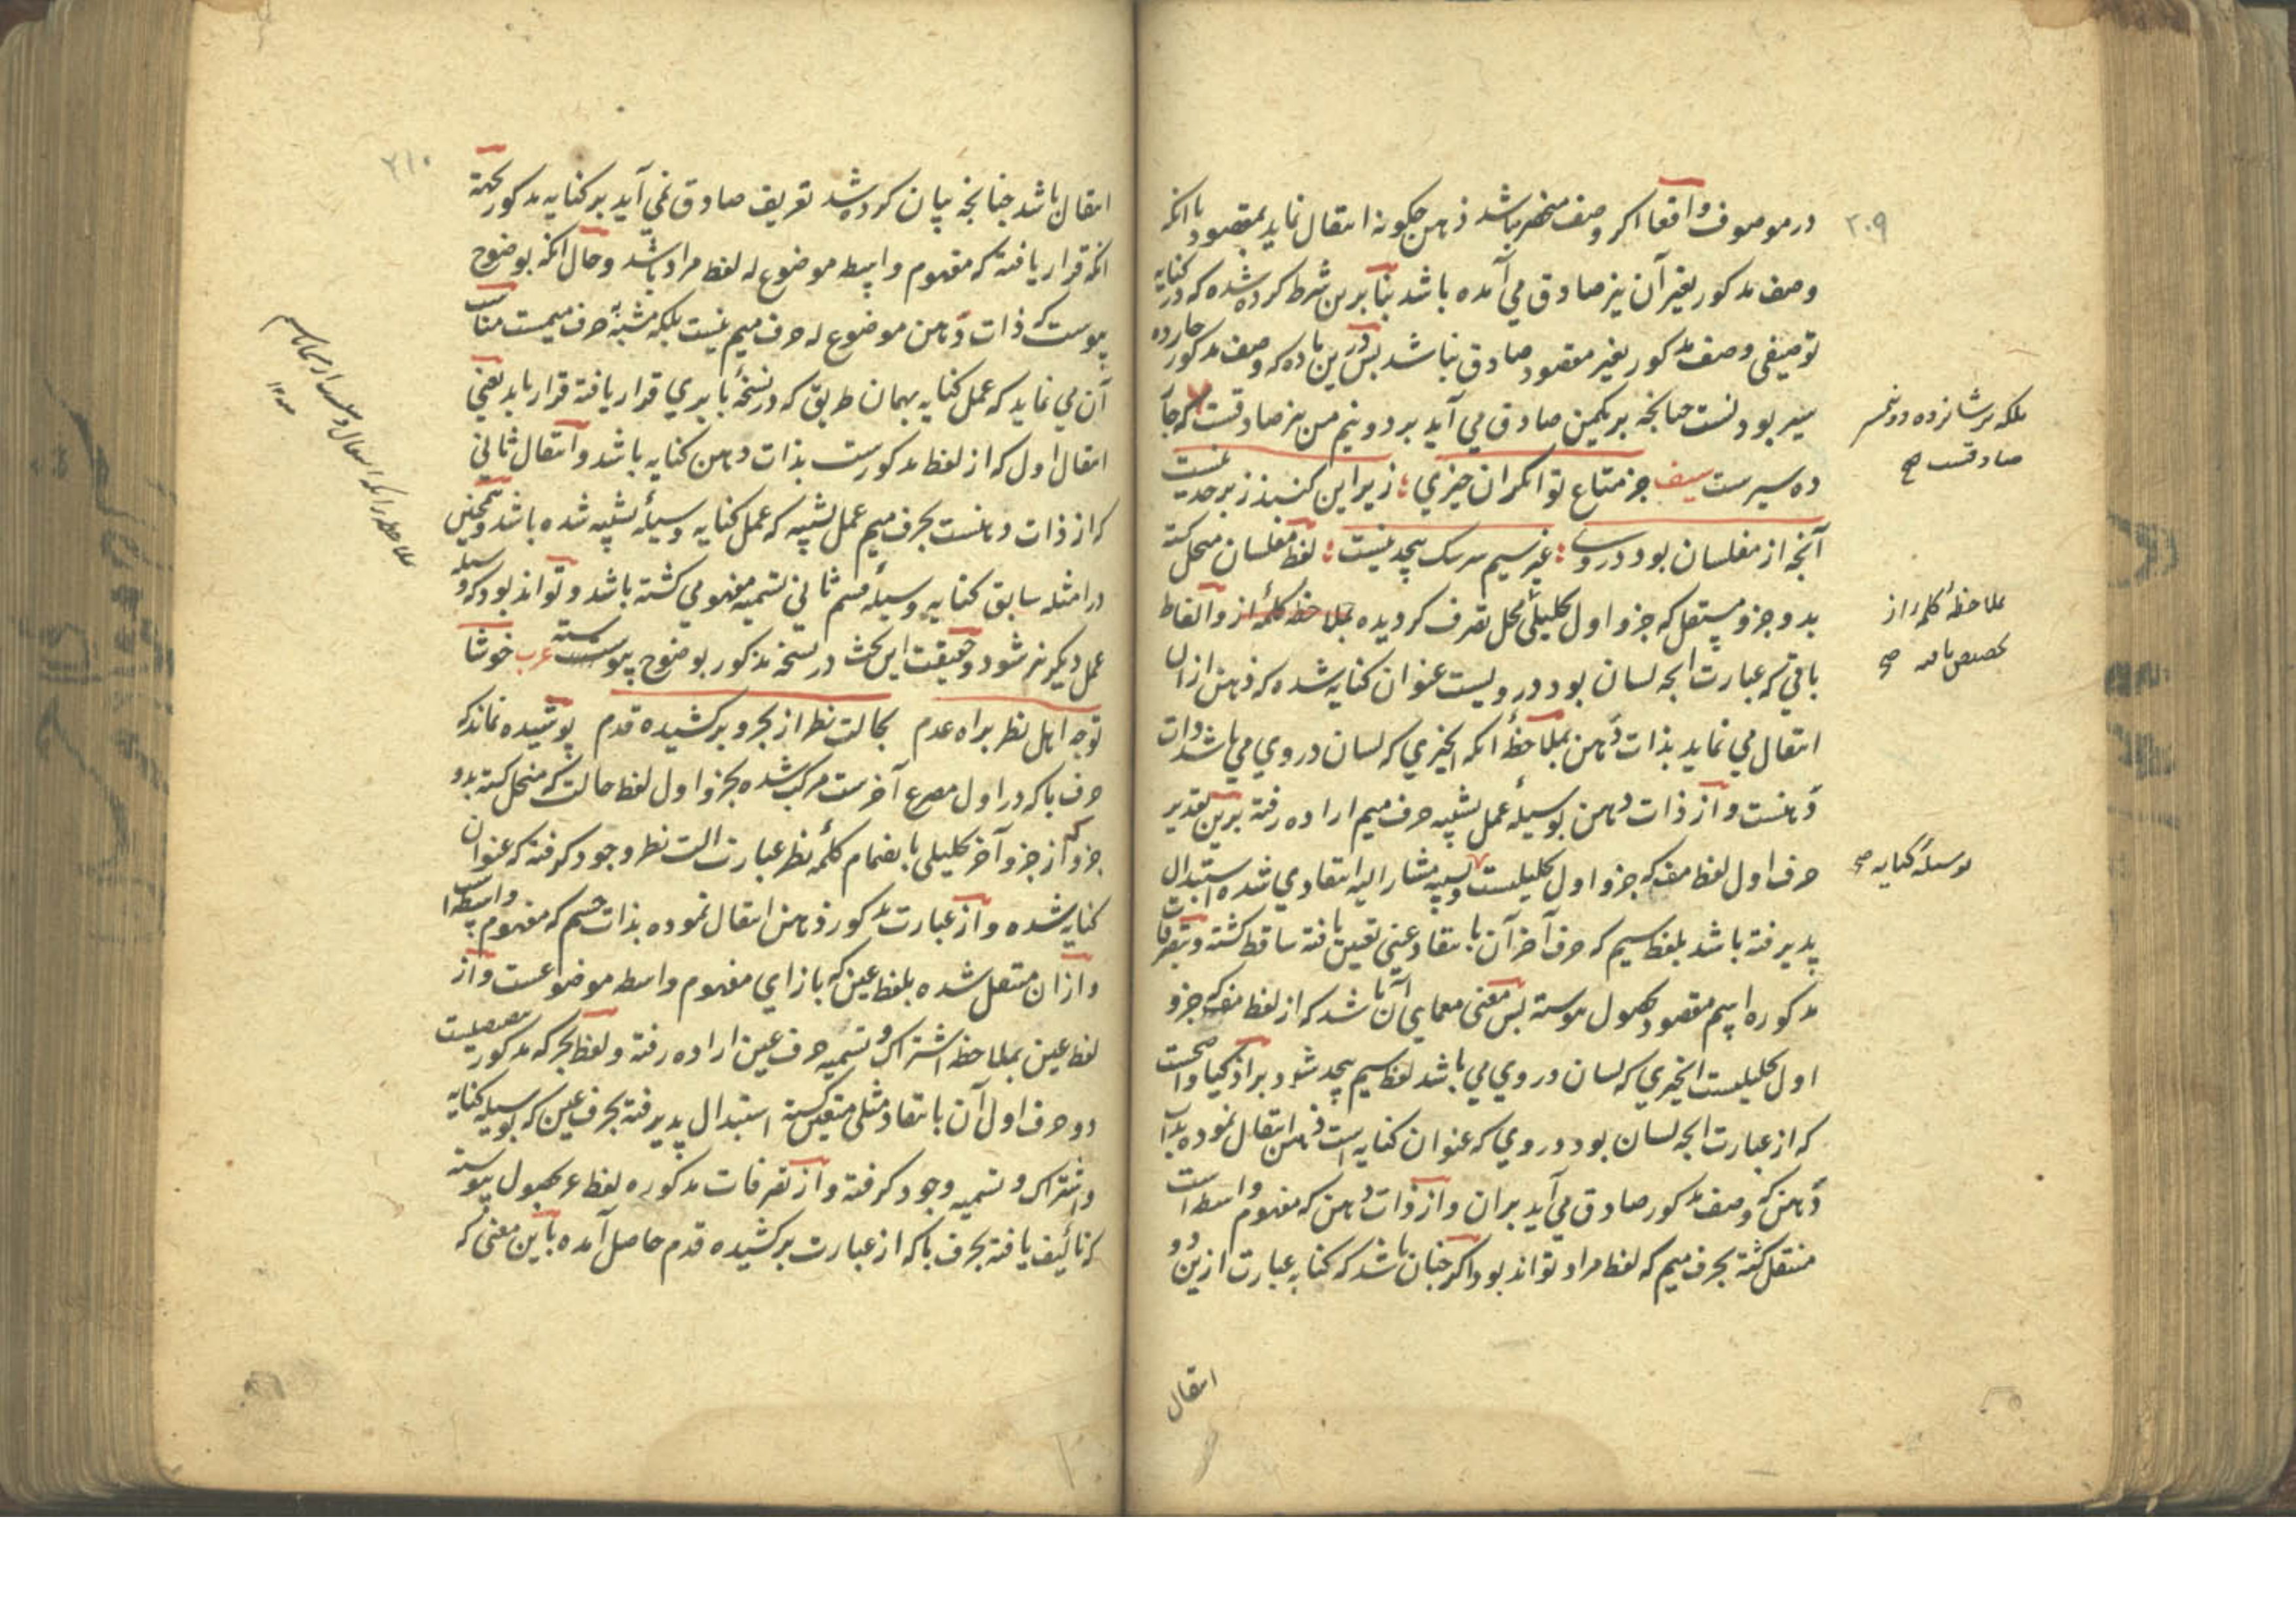 ۲۰۹
در موصوف واقعا اگر وصف منحصر باشد ذهن چگونه انتقال نماید بمقصود با انکه
وصف مذکور بغیر آن نیز صادق می آمده باشد بنا برین شرط کرده شده که در کنایه
توصیفی وصف مذکور بغیر مقصود صادق نباشد پس درین ماده که وصف مذکور
سیر بودنست چنانچه بر یکمن صادق می آید بر دو نیم من نیز صادقست که
ده سیرست سیف جز متاع توانگران چیزی ؛ زیر این کنبذ زبرجد نیست
آنچه از مفلسان بود در وی ؛ غیر سیم سرشک بیحد نیست ؛ لفظ مفلسان منحل گشته
بدو جزو مستقل که جزو اول تحلیلی محل تصرف گردیده بملاحظه کلمه از و الفاظ
باقی که عبارت انچه لسان بود در ویست عنوان کنایه شده که ذهن ازان
انتقال می نماید بذات دهن بملاحظه انکه انچیزی که لسان در وی می باشد ذات
دهنست و از ذات دهن بوسیله عمل تشبیه حرف میم اراده رفته برین تقدیر
حرف اول لفظ مف که جزو اول تحلیلیست مشار الیه انتقادی شده استبدال
پذیرفته باشد بلفظ سیم که حرف آخر آن بانتقاد عینی تعیین یافته ساقط گشته و بتصرفات
مذکوره اسم مقصود بحصول پیوسته پس معنی معمای آن باشد که از لفظ مف که جزو
اول تحلیلیست انچیزی که لسان در وی می باشد لفظ سیم بیحد شود
که از عبارت انچه لسان بود در وی که عنوان کنایه است ذهن انتقال نموده بذات
دهن که وصف مذکور صادق می آید بران و از ذات دهن که مفهوم واسطه است
منتقل گشته بحرف میم که لفظ مراد تواند بود اگر چنان باشد که کنایه عبارت ازین دو
انتقال
بلکه بر شانزده دو نیم سیر
صادقست صح
بملاحظه کلمه از
صح
بوسیله کنایه صح
۲۱۰
انتقال باشد چنانچه بیان کرده شد تعریف صادق نمی آید بر کنایه مذکور بجهة
انکه قرار یافته که مفهوم واسطه موضوع له لفظ مراد باشد و حال انکه بوضوح
پیوست که ذات دهن موضوع له حرف میم نیست بلکه مشبه حرف میمست مناسب
آن می نماید که عمل کنایه بهمان طریق که در نسخه بابری قرار یافته قرار یابد یعنی
انتقال اول که از لفظ مذکورست بذات دهن کنایه باشد و انتقال ثانی
که از ذات دهنست بحرف میم عمل تشبیه که عمل کنایه وسیله تشبیه شده باشد و همچنین
در امثله سابق کنایه وسیله قسم ثانی تسمیه مفهومی گشته باشد و تواند بود که وسیله
عمل دیگر نیز شود و حقیقت این بحث در نسخه مذکور بوضوح پیوسته عرب خوشا
توجه اهل نظر براه عدم بحالت نظر از بحر و بر کشیده قدم پوشیده نماند که
حرف با که در اول مصرع آخرست مرکب شده بجزو اول لفظ حالت که منحل گشته بدو
جزو که از جزو آخر تحلیلی بانضمام کلمه نظر عبارت الت نظر وجود گرفته که عنوان
کنایه شده و از عبارت مذکور ذهن انتقال نموده بذات چشم که مفهوم واسطه است
و ازان منتقل شده بلفظ عین که بازای مفهوم واسطه موضوعست و از
لفظ عین بملاحظه اشتراک و تسمیه حرف عین اراده رفته و لفظ بحر که مذکور
دو حرف اول آن بانتقاد مثلی متعین گشته استبدال پذیرفته بحرف عین که بوسیله کنایه
و اشتراک و تسمیه وجود گرفته و از تصرفات مذکوره لفظ عر بحصول پیوسته
که تالیف یافته بحرف با که از عبارت بر کشیده قدم حاصل آمده باین معنی که